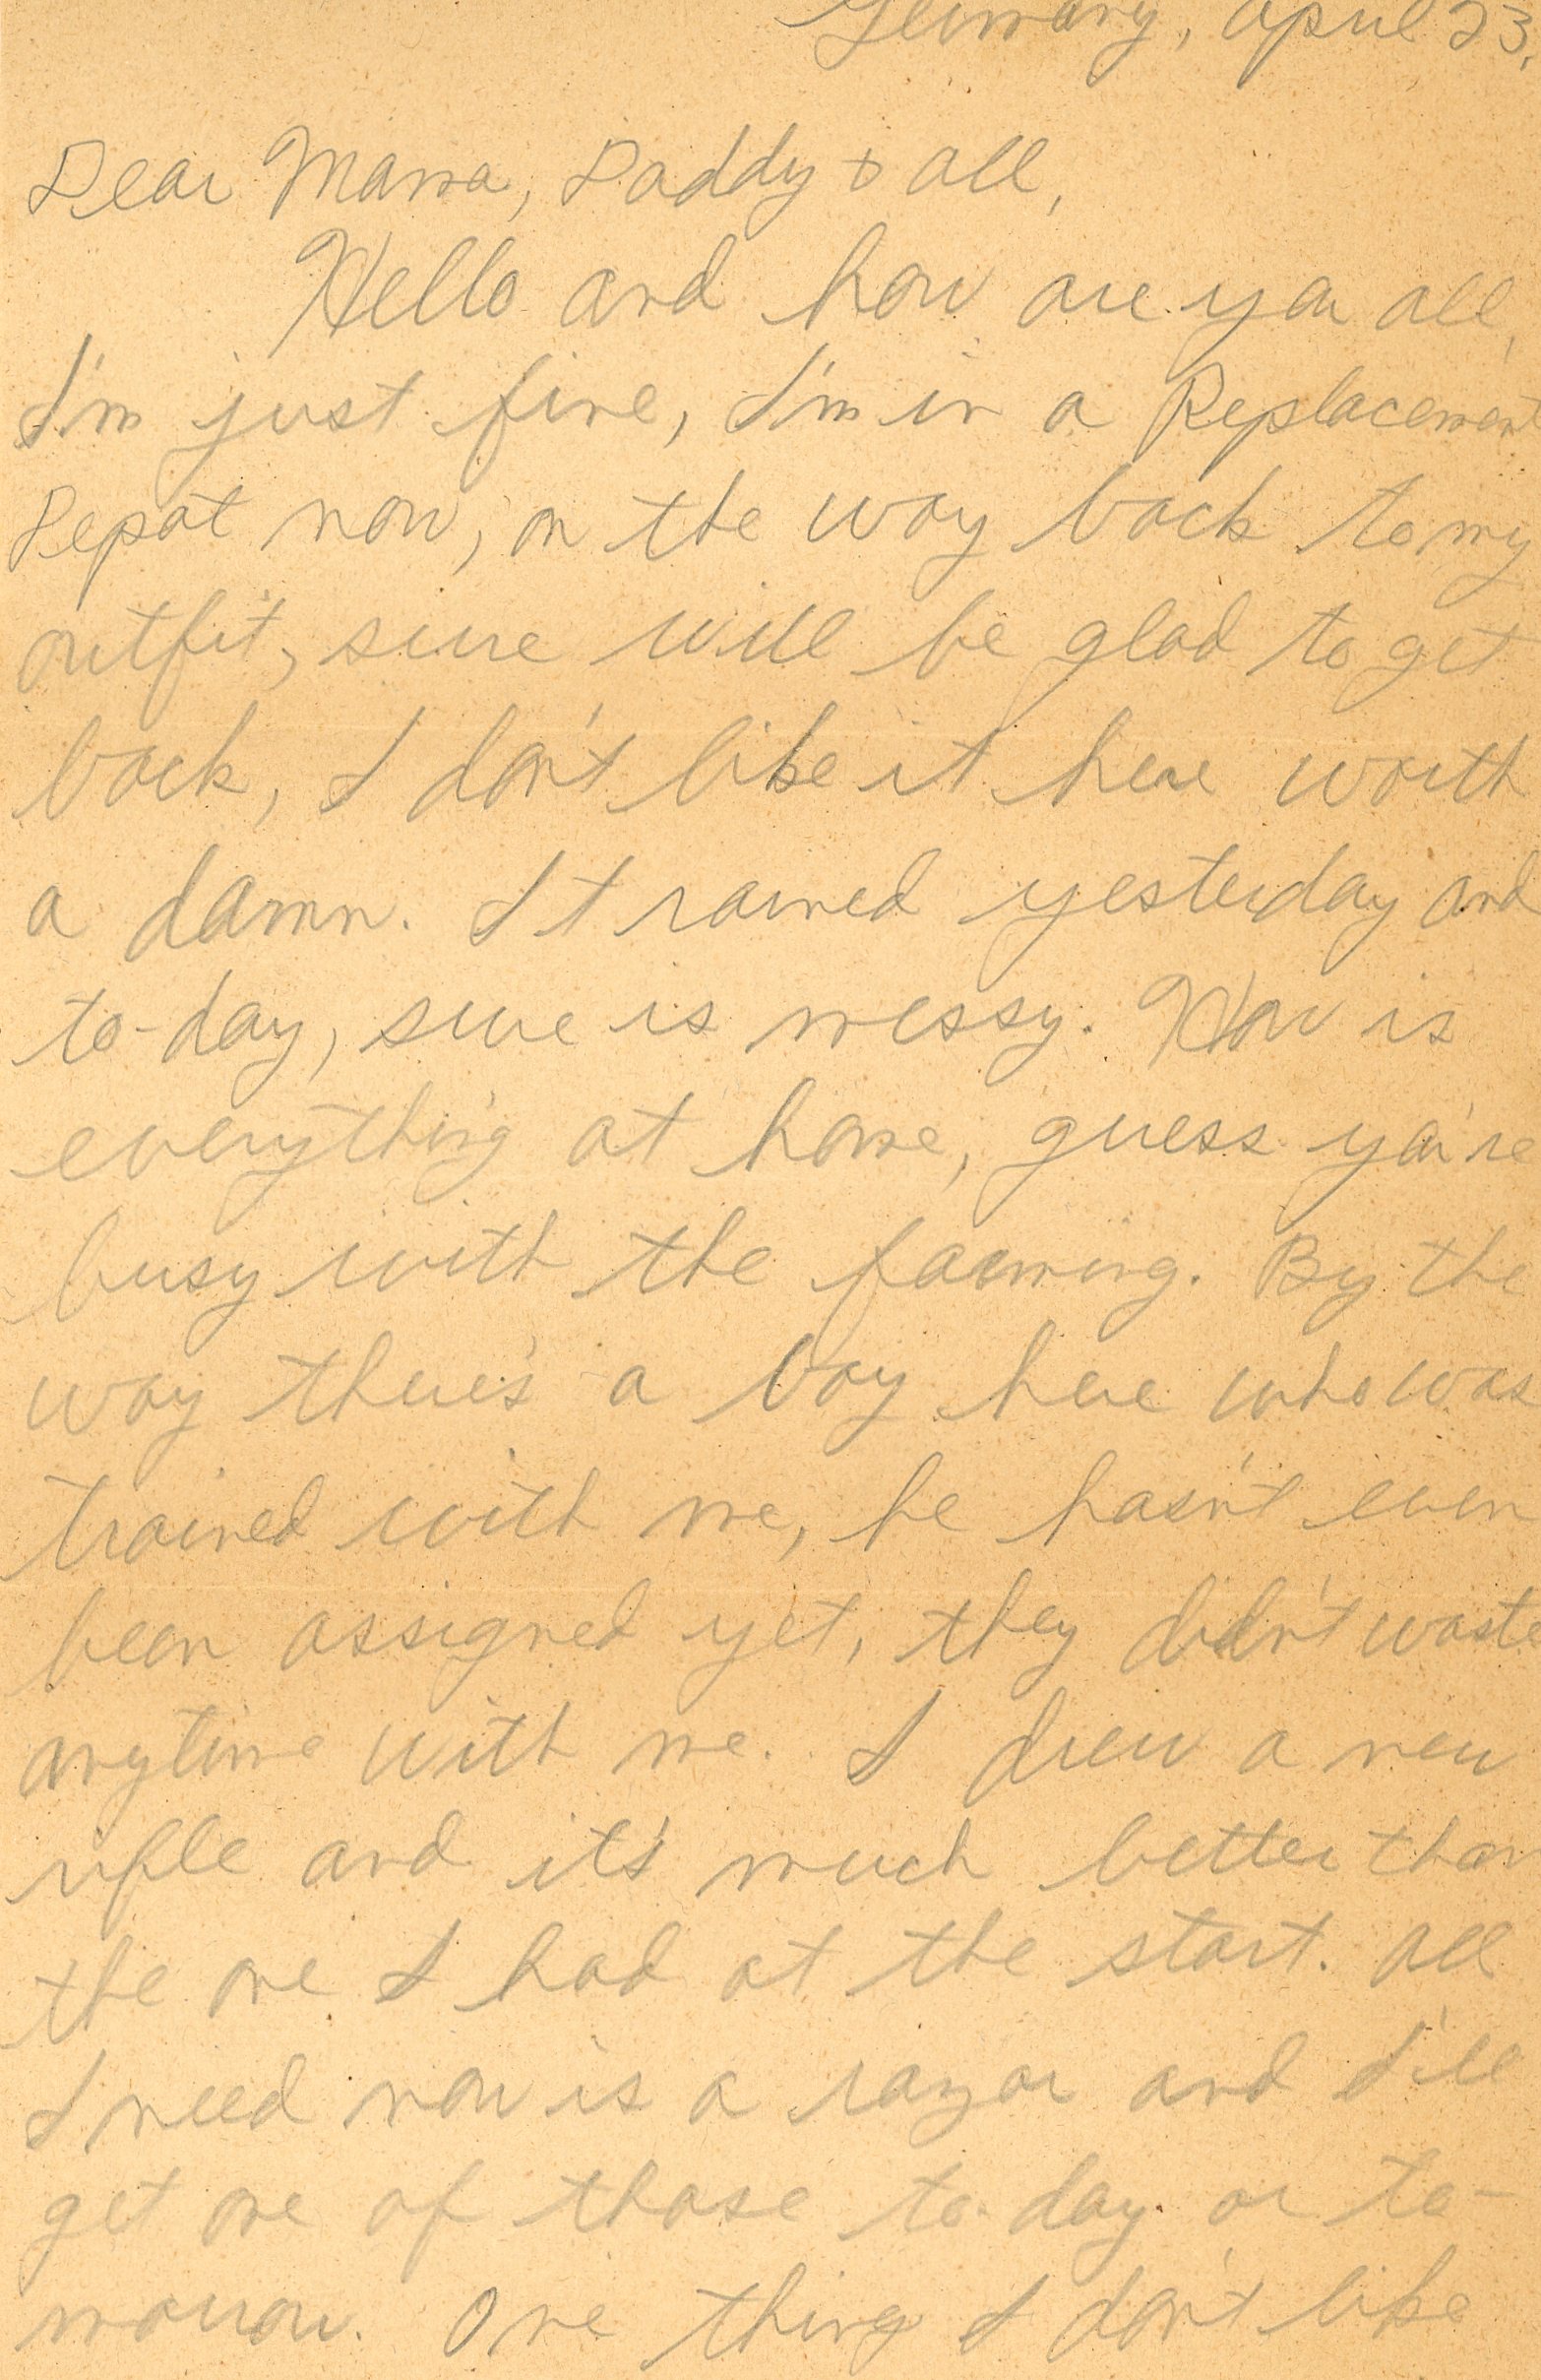 Germany, April 23,
Dear Mama, Daddy & all,
Hello and how are you all,
I'm just fine, I'm in a Replacement
Depot now, on the way back to my
outfit, sure will be glad to get
back, I don't like it here worth
a damn. It rained yesterday and
to-day, sure is messy. How is
everything at home, guess you're
busy with the farming. By the
way there's a boy here who was
trained with me, he hasn't even
been assigned yet, they didn't waste
anytime with me. I drew a new
rifle and it's much better than
the one I had at the start. All
I need now is a razor and I'll
get one of those to-day or to-
morrow. One thing I don't like